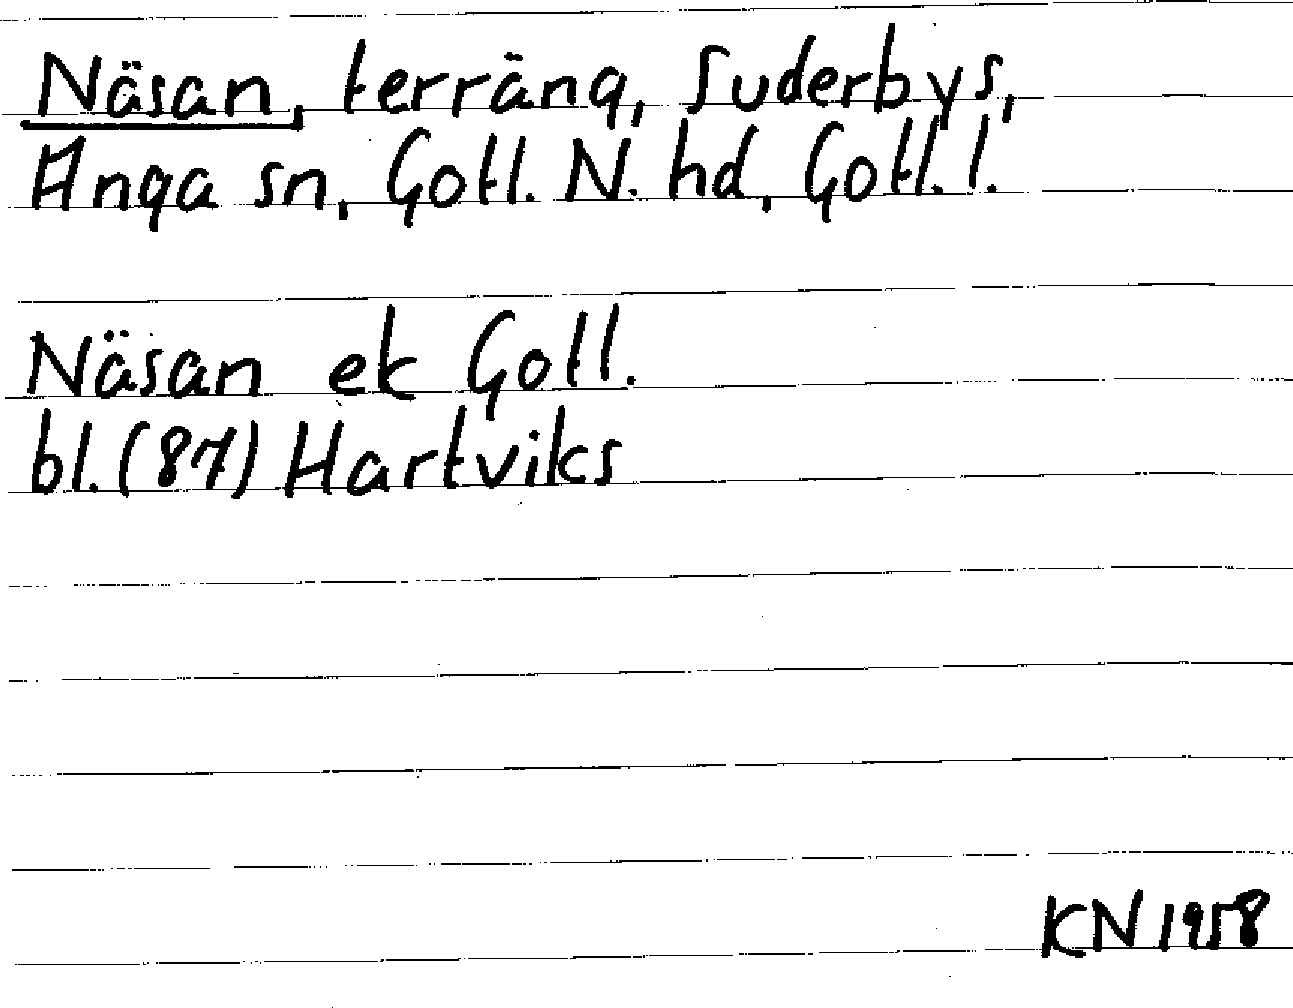 Näsan, terräng, Suderbys,
Anga sn, Gotl. N. hd, Gotl. l.
Näsan ek Gotl.
bl. (87) Hartviks
KN 1958